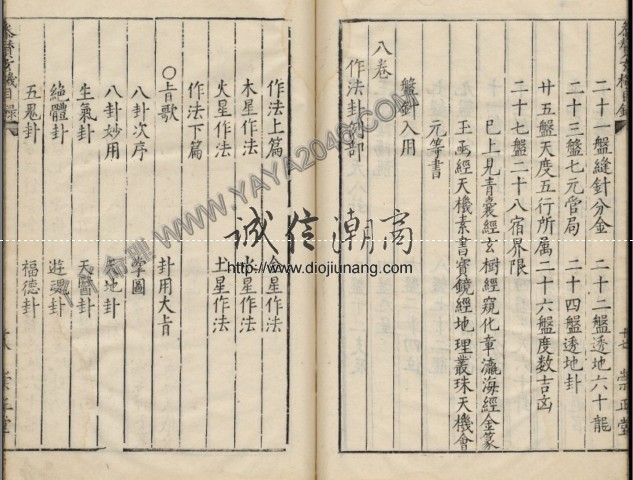 二十一盤縫針分金 二十二盤透地六十龍
二十三盤七元當局 二十四盤透地卦
廿五盤天度五行所属二十六盤度數吉凶
二十七盤二十八宿界限
已上見青囊經玄樞經窺化章瀛海經金篆
玉函經天機素書寶鏡經地理叢珠天機會
元等書
盤針入用
八卷
作法卦例部
作法上篇 金星作法
木星作法 水星作法
火星作法 土星作法
作法下篇
○㫖歌 卦用大㫖
八卦次序 掌圖
八卦妙用 天地卦
生氣卦 天醫卦
絶體卦 遊魂卦
五鬼卦 福德卦
崇正堂
誠信潮商
http://www.diojiunang.com
WWW.YAYA2046.COM